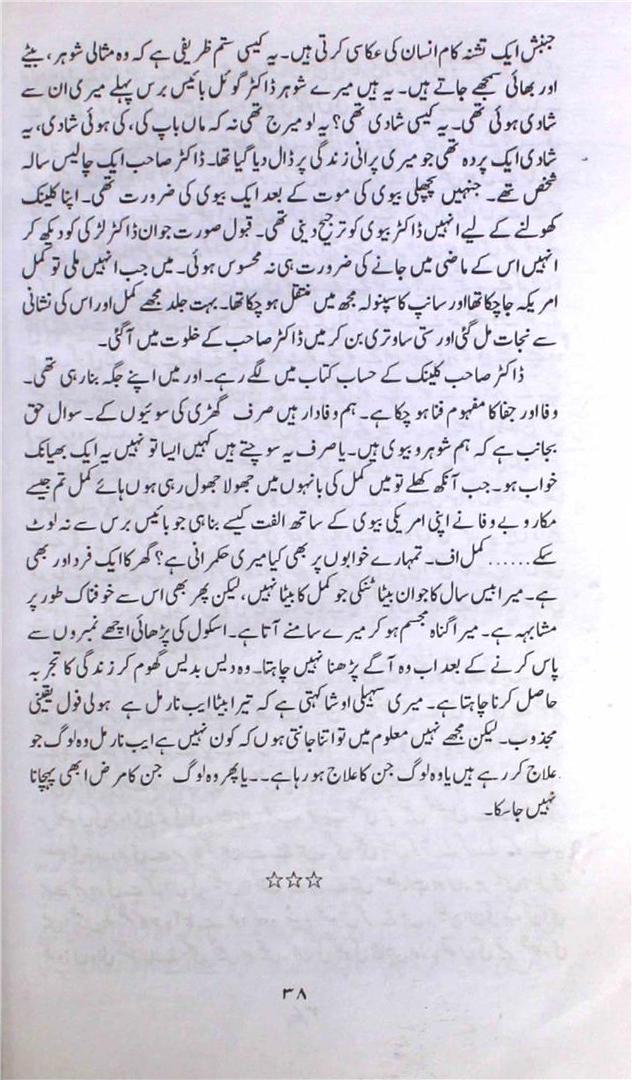 جنبش ایک تشنہ کام انسان کی عکاسی کرتی ہیں۔ یہ کیسی ستم ظریفی ہے کہ وہ مثالی شوہر، بیٹے
اور بھائی سمجھے جاتے ہیں۔ یہ ہیں میرے شوہر ڈاکٹر گوئل بائیس برس پہلے میری ان سے
شادی ہوئی تھی۔ یہ کیسی شادی تھی؟ یہ لو میرج تھی نہ کہ ماں باپ کی، کی ہوئی شادی، یہ
شادی ایک پردہ تھی جو میری پرانی زندگی پر ڈال دیا گیا تھا۔ ڈاکٹر صاحب ایک چالیس سالہ
شخص تھے۔ جنہیں پچھلی بیوی کی موت کے بعد ایک بیوی کی ضرورت تھی۔ اپنا کلینک
کھولنے کے لیے انہیں ڈاکٹر بیوی کو ترجیح دینی تھی۔ قبول صورت جوان ڈاکٹر لڑکی کو دیکھ کر
انہیں اس کے ماضی میں جانے کی ضرورت ہی نہ محسوس ہوئی۔ میں جب انہیں ملی تو کمل
امریکہ جا چکا تھا اور سانپ کا سپنولہ مجھ میں منتقل ہو چکا تھا۔ بہت جلد مجھے کمل اور اس کی نشانی
سے نجات مل گئی اور ستی ساوتری بن کر میں ڈاکٹر صاحب کے خلوت میں آ گئی۔
ڈاکٹر صاحب کلینک کے حساب کتاب میں لگے رہے۔ اور میں اپنے جگہ بنا رہی تھی۔
وفا اور جفا کا مفہوم فنا ہو چکا ہے۔ ہم وفادار ہیں صرف گھڑی کی سوئیوں کے۔ سوال حق
بجانب ہے کہ ہم شوہر و بیوی ہیں۔ یا صرف یہ سوچتے ہیں کہیں ایسا تو نہیں یہ ایک بھیانک
خواب ہو۔ جب آنکھ کھلے تو میں کمل کی بانہوں میں جھولا جھول رہی ہوں ہائے کمل تم جیسے
مکار و بے وفا نے اپنی امریکی بیوی کے ساتھ الفت کیسے بنا ہی جو بائیس برس سے نہ لوٹ
سکے...... کمل اف۔ تمہارے خوابوں پر بھی کیا میری حکمرانی ہے؟ گھر کا ایک فرد اور بھی
ہے۔ میرا بیس سال کا جوان بیٹا ٹنکی جو کمل کا بیٹا نہیں، لیکن پھر بھی اس سے خوفناک طور پر
مشابہہ ہے۔ میرا گناہ مجسم ہو کر میرے سامنے آتا ہے۔ اسکول کی پڑھائی اچھے نمبروں سے
پاس کرنے کے بعد اب وہ آگے پڑھنا نہیں چاہتا۔ وہ دیس بدیس گھوم کر زندگی کا تجربہ
حاصل کرنا چاہتا ہے۔ میری سہیلی اوشا کہتی ہے کہ تیرا بیٹا ایب نارمل ہے ہولی فول یقینی
مجذوب۔ لیکن مجھے نہیں معلوم میں تو اتنا جانتی ہوں کہ کون نہیں ہے ایب نارمل وہ لوگ جو
علاج کر رہے ہیں یا وہ لوگ جن کا علاج ہو رہا ہے۔۔ یا پھر وہ لوگ جن کا مرض ابھی پہچانا
نہیں جا سکا۔
☆☆☆
۳۸